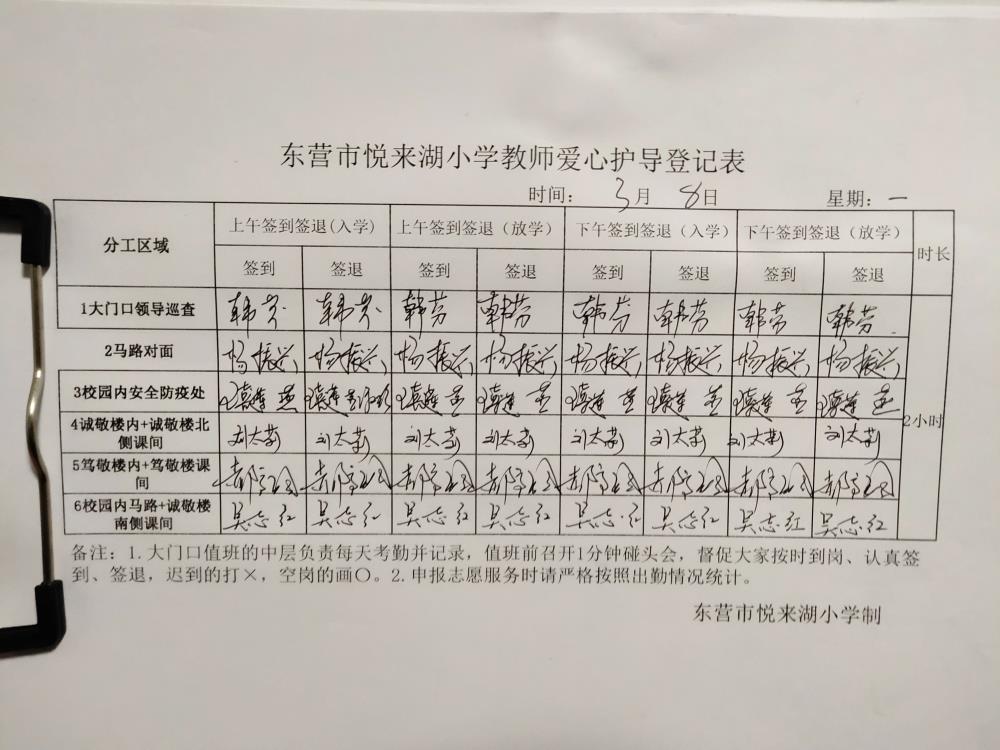 东营市悦来湖小学教师爱心护导登记表
时间： 3月 8日 星期：一
分工区域 上午签到签退(入学) 上午签到签退（放学） 下午签到签退（入学） 下午签到签退（放学） 时长
签到 签退 签到 签退 签到 签退 签到 签退
1大门口领导巡查 韩芳 韩芳 韩芳 韩芳 韩芳 韩芳 韩芳 韩芳
2马路对面 杨振兴 杨振兴 杨振兴 杨振兴 杨振兴 杨振兴 杨振兴 杨振兴
3校园内安全防疫处
2小时
4诚敬楼内+诚敬楼北
侧课间 刘大莉 刘大莉 刘大莉 刘大莉 刘大莉 刘大莉 刘大莉 刘大莉
5笃敬楼内+笃敬楼课
间
6校园内马路+诚敬楼
南侧课间 吴志红 吴志红 吴志红 吴志红 吴志红 吴志红 吴志红 吴志红
备注：1.大门口值班的中层负责每天考勤并记录，值班前召开1分钟碰头会，督促大家按时到岗、认真签
到、签退，迟到的打×，空岗的画〇。2.申报志愿服务时请严格按照出勤情况统计。
东营市悦来湖小学制